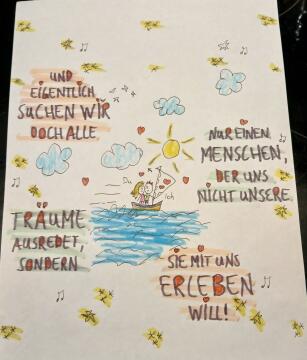 UND
EIGENTLICH
SUCHEN WIR
DOCH ALLE
NUR EINEN
MENSCHEN,
DER UNS
NICHT UNSERE
TRÄUME
AUSREDET,
SONDERN
SIE MIT UNS
ERLEBEN
WILL!
Du
ich